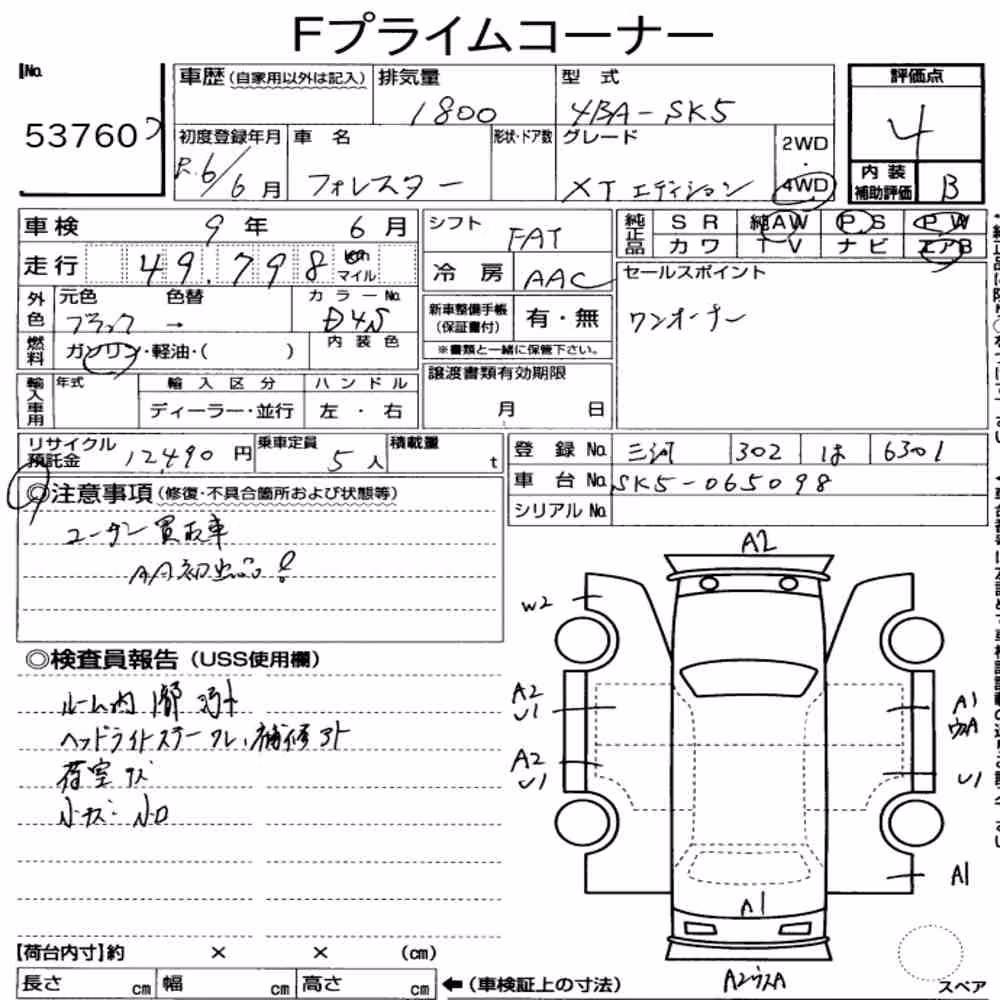 Fプライムコーナー
No.
53760
車歴 (自家用以外は記入)
排気量
1800
型式
4BA-SK5
評価点
4
内装補助評価
B
初度登録年月
R.6/6月
車名
フォレスター
形状・ドア数
グレード
XTエディション
2WD
・
4WD
車検 9年 6月
走行 49.798 km マイル
外色
元色 色替 カラーNo.
ブラック → D4S
燃料
ガソリン・軽油・( )
内装色
輸入車用
年式 輸入区分 ハンドル
ディーラー・並行 左・右
シフト FAT
冷房 AAC
新車整備手帳(保証書付) 有・無
※書類と一緒に保管下さい。
譲渡書類有効期限
月 日
純正品
SR 純AW PS PW
カワ TV ナビ エアB
セールスポイント
ワンオーナー
リサイクル預託金 12490円
乗車定員 5人
積載量 t
登録No. 三河 302 は 6301
車台No. SK5-065098
シリアルNo.
◎注意事項 (修復・不具合箇所および状態等)
ユーザー買取車
AA初出品!
◎検査員報告 (USS使用欄)
ルーム内
ヘッドライトステー ワレ、補修アト
荷室キズ
小キズ・小凹
A2
W2
A2
U1
A2
U1
A1
U1
A1
A1
【荷台内寸】約 × × (cm)
長さ cm 幅 cm 高さ cm
←(車検証上の寸法)
スペア